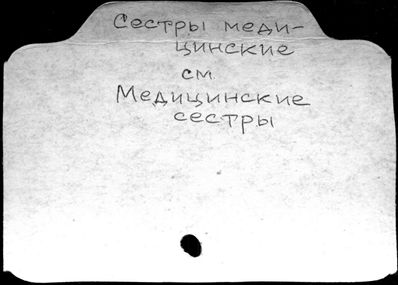 Сестры меди-
цинские
см
Медицинские
сестры